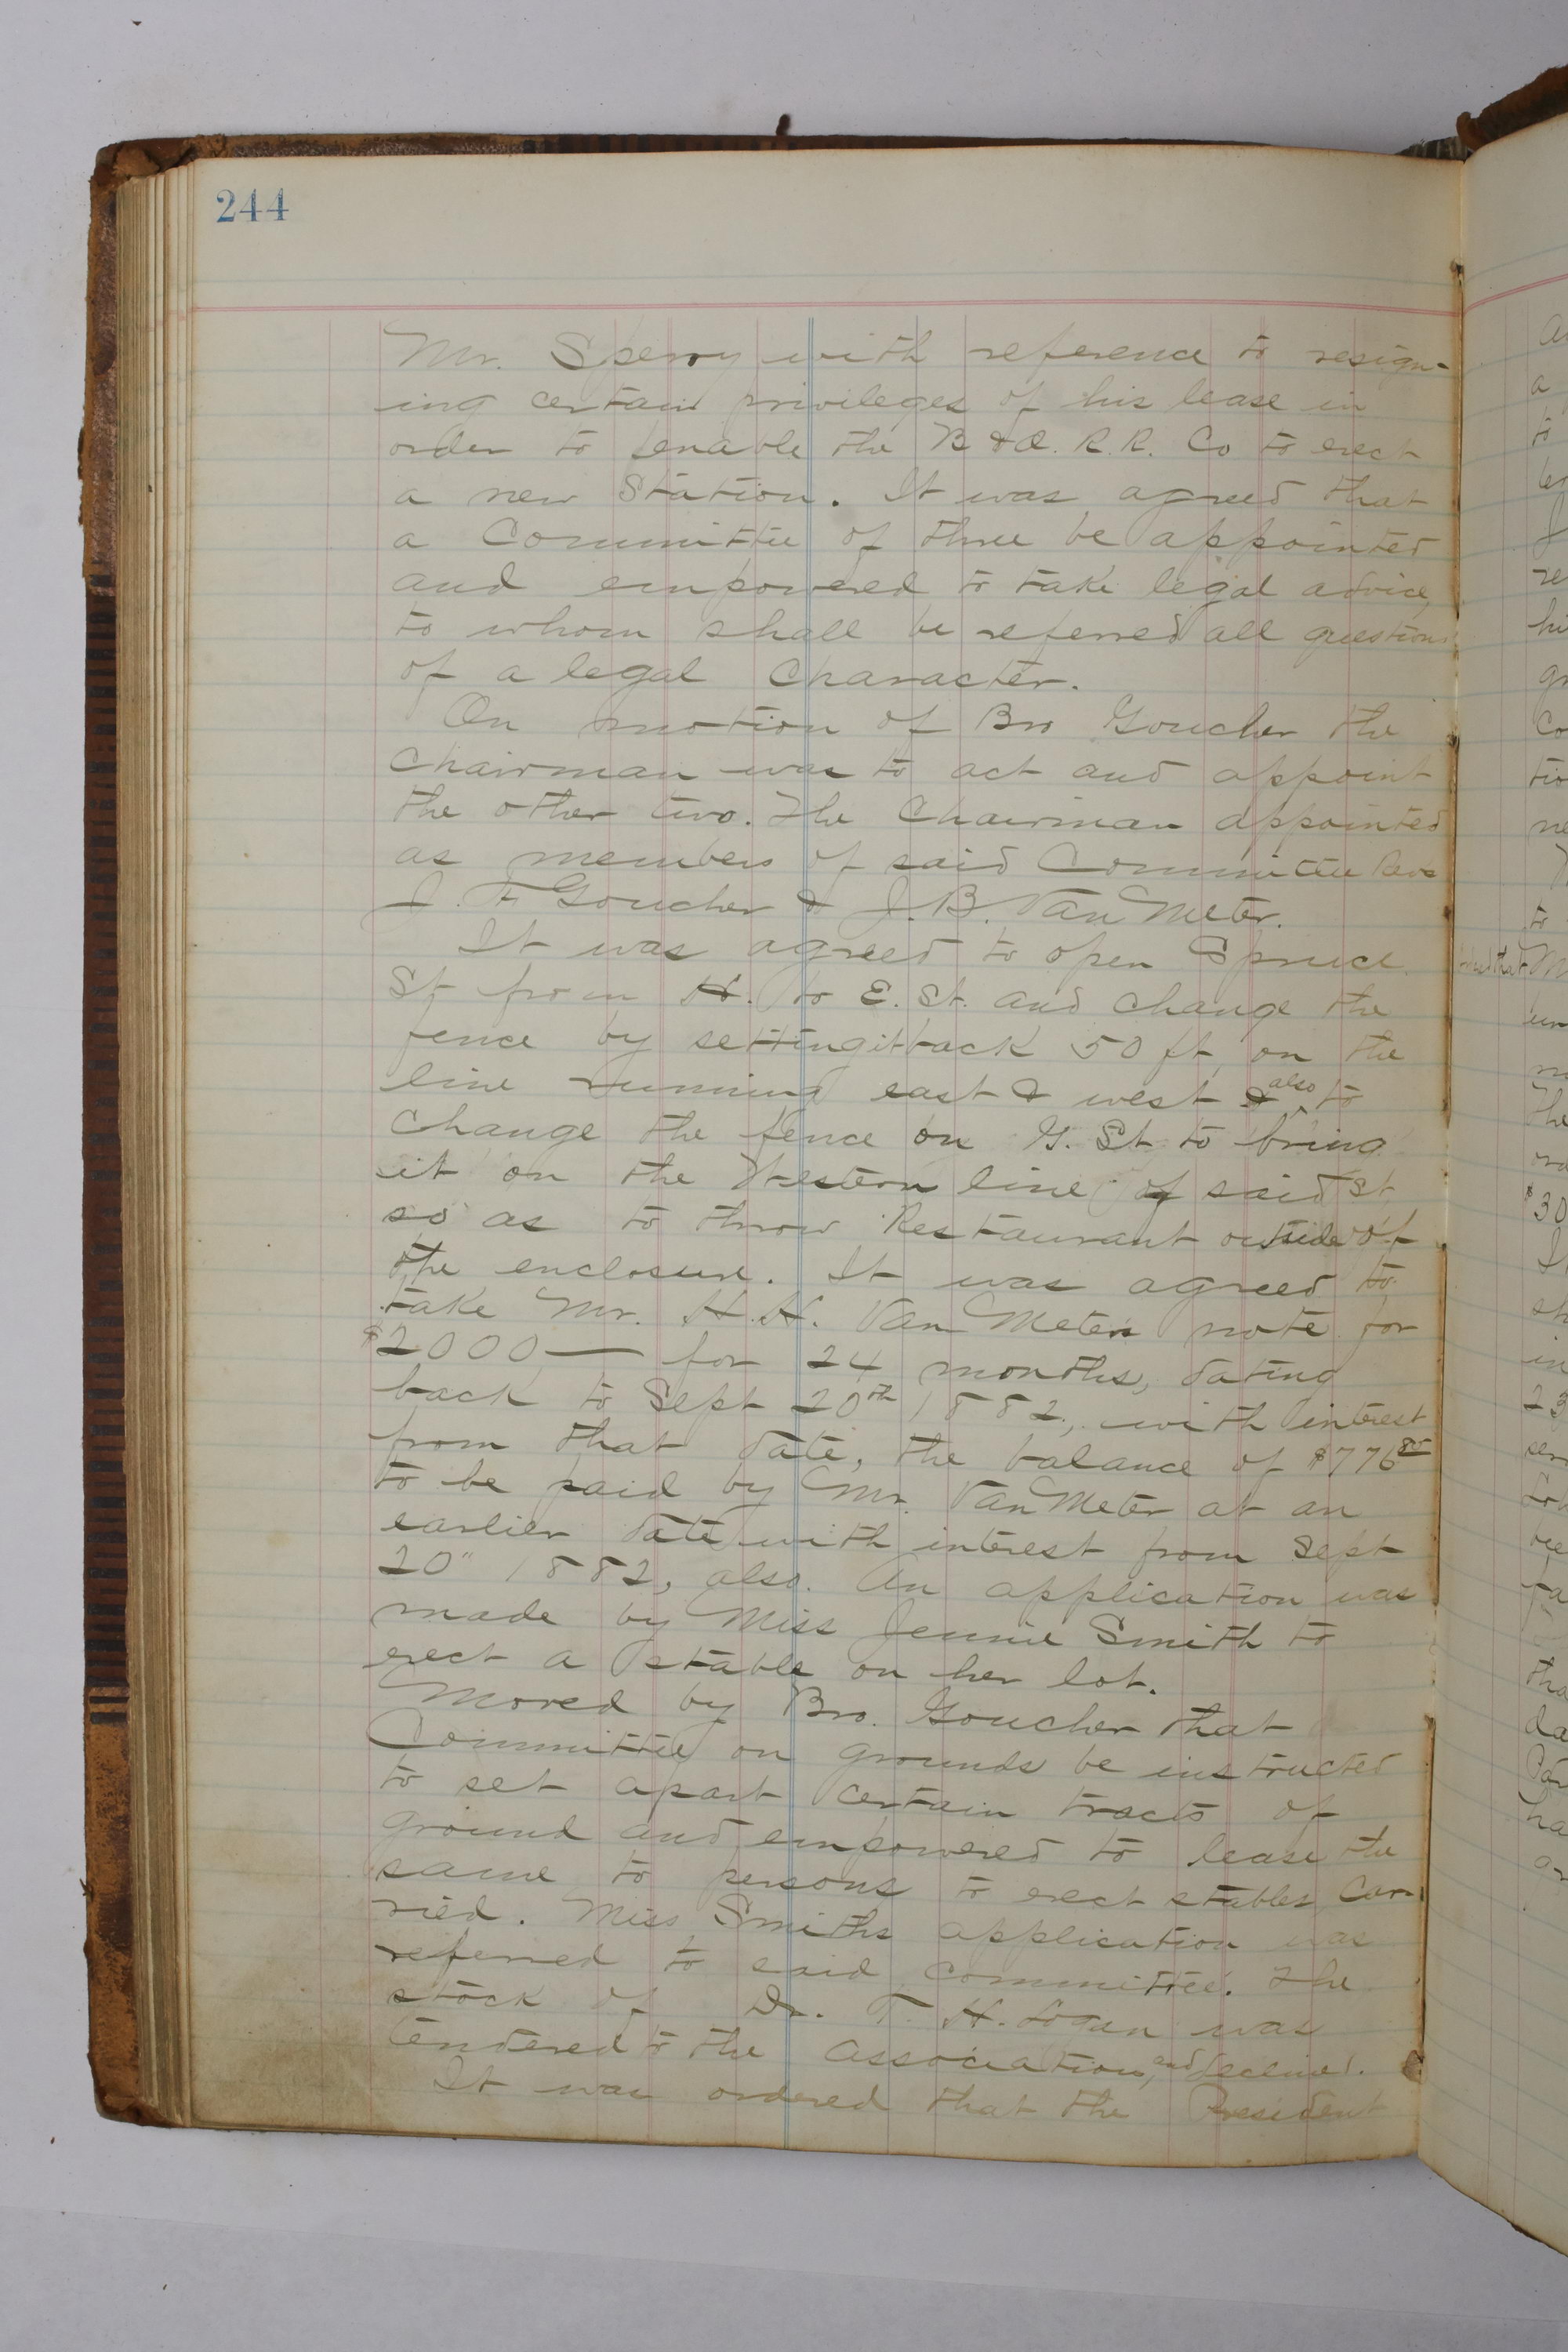 244
Mr. Sperry with reference to resign-
ing certain privileges of his lease in
order to enable the B & O. R. R. Co to erect
a new Station. It was agreed that
a Committee of three be appointed
and empowered to take legal advice,
to whom shall be referred all questions
of a legal Character.
On motion of Bro Goucher the
Chairman was to act and appoint
the other two. The Chairman appointed
as members of said Committee Revs
J. F. Goucher & J. B. Van Meter.
It was agreed to open Spruce
St from H. to E. St. and change the
fence by setting it back 50 ft, on the
line running east & west & also to
change the fence on G. St to bring
it on the Western line of said St
so as to throw Restaurant outside of
the enclosure. It was agreed to
take Mr. H. H. Van Meters note for
$2000 — for 24 months, dating
back to Sept 20th 1882, with interest
from that date, the balance of $776
to be paid by Mr. Van Meter at an
earlier date with interest from Sept
20" 1882, also. An application was
made by Miss Jennie Smith to
erect a stable on her lot.
Moved by Bro. Goucher that
Committee on grounds be instructed
to set apart certain tracts of
ground and empowered to lease the
same to persons to erect stables, Car-
ried. Miss Smiths application was
referred to said Committee. The
stock of Dr. T. H. Logan was
tendered to the Association, and declined.
It was ordered that the President